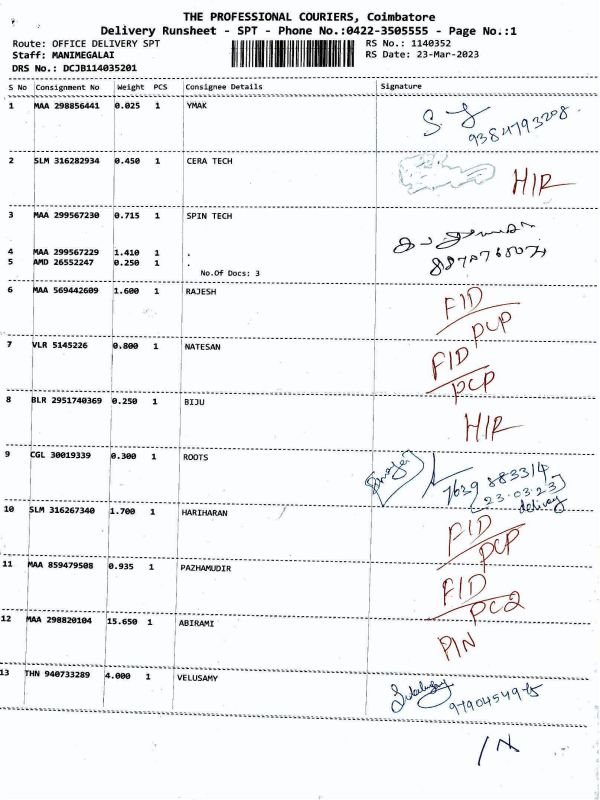 THE PROFESSIONAL COURIERS, Coimbatore
Delivery Runsheet - SPT - Phone No.:0422-3505555 - Page No.:1
Route: OFFICE DELIVERY SPT RS No.: 1140352
Staff: MANIMEGALAI RS Date: 23-Mar-2023
DRS No.: DCJB114035201
S No Consignment No Weight PCS Consignee Details Signature
1 MAA 298856441 0.025 1 YMAK
9384793208
2 SLM 316282934 0.450 1 CERA TECH HIR
3 MAA 299567230 0.715 1 SPIN TECH
4 MAA 299567229 1.410 1 .
5 AMD 26552247 0.250 1 .
No.Of Docs: 3
6 MAA 569442609 1.600 1 RAJESH FID
PCP
7 VLR 5145226 0.800 1 NATESAN FID
PCP
8 BLR 2951740369 0.250 1 BIJU HIR
9 CGL 30019339 0.300 1 ROOTS 7639883314
23.03.23
delivery
10 SLM 316267340 1.700 1 HARIHARAN FID
PCP
11 MAA 859479508 0.935 1 PAZHAMUDIR FID
PC2
12 MAA 298820104 15.650 1 ABIRAMI PIN
13 THN 940733289 4.000 1 VELUSAMY
9790454975